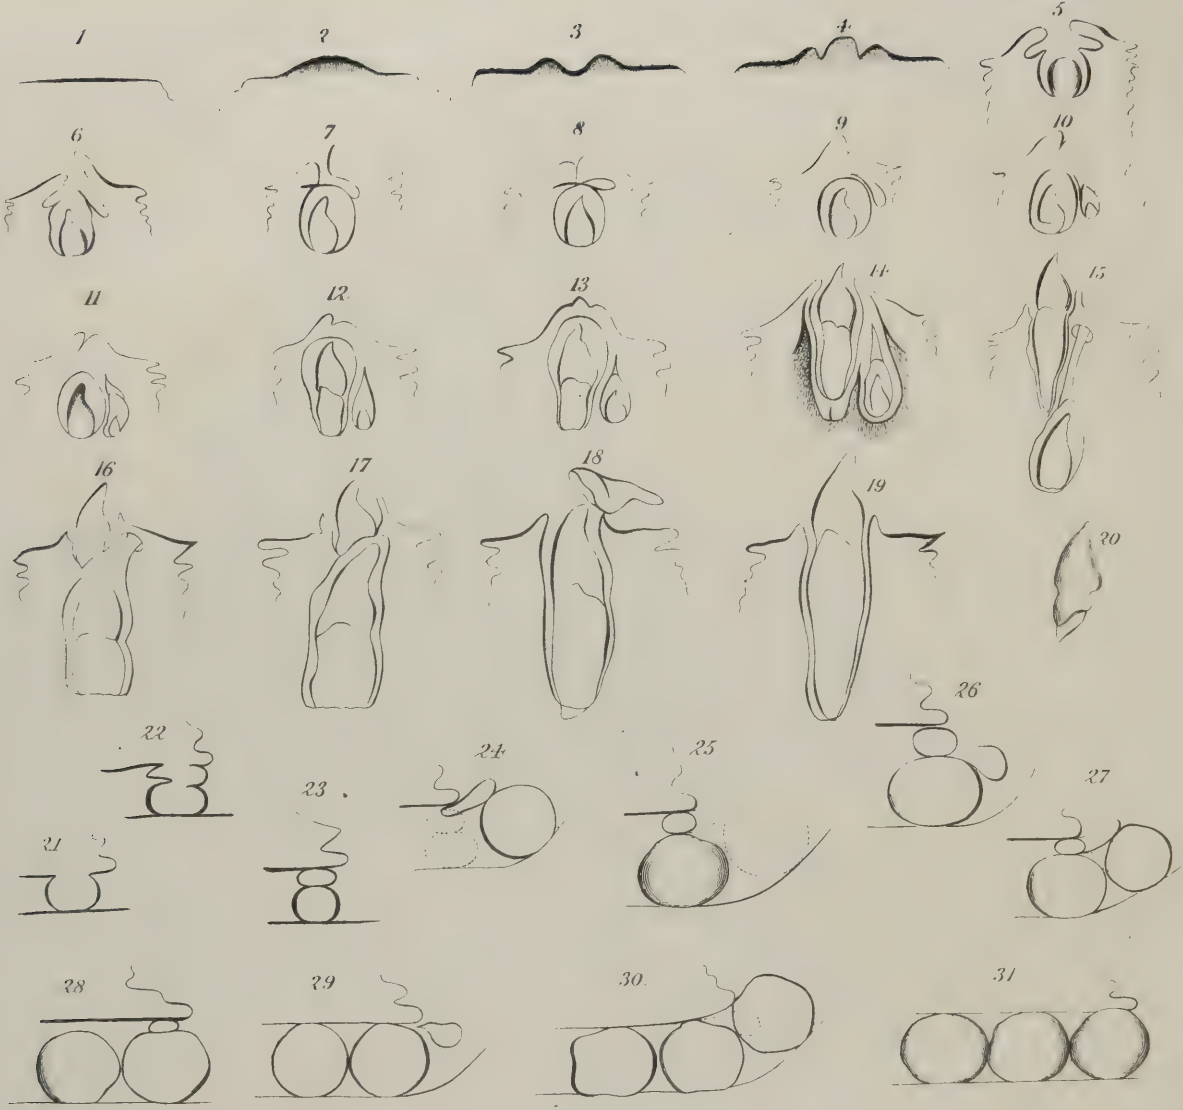 1 2 3 4 5
6 7 8 9 10
11 12 13 14 15
16 17 18 19
20
22 24 25 26
23 27
21
28 29 30. 31